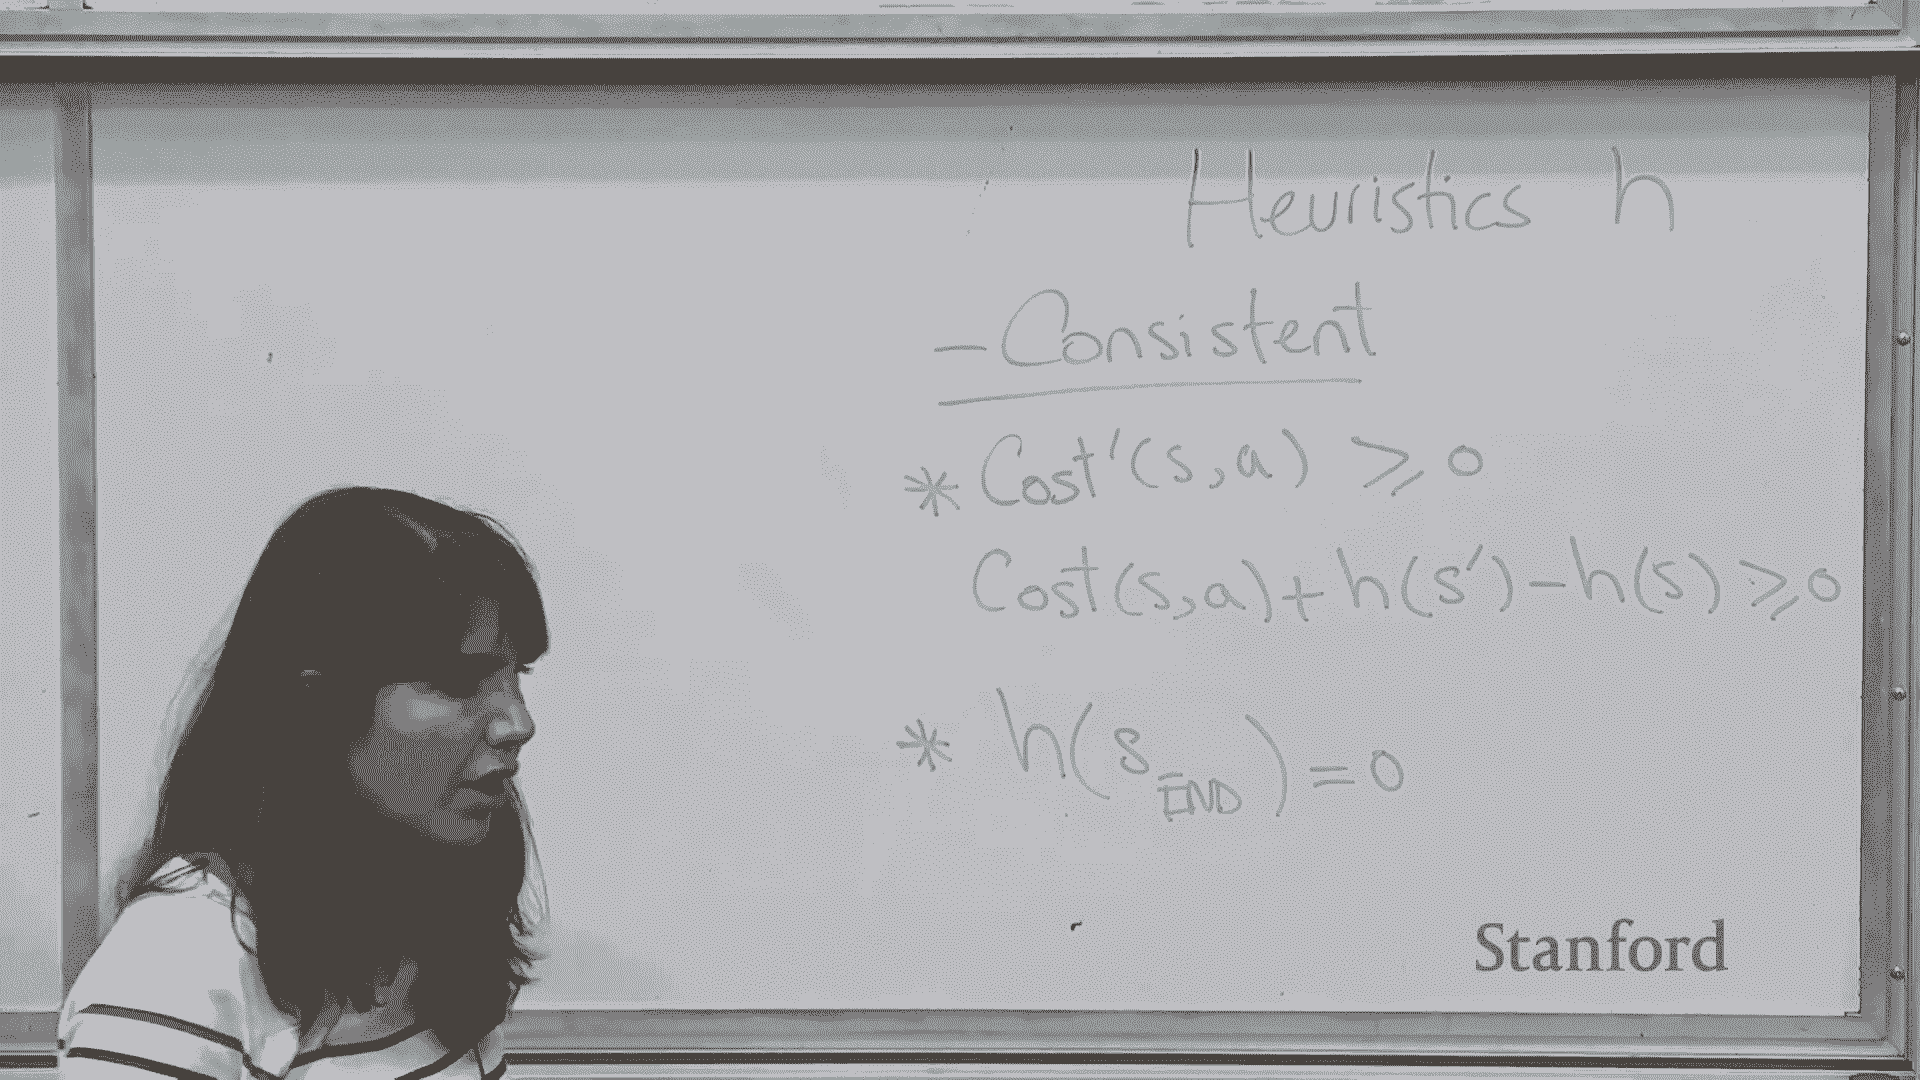 Heuristics h
- Consistent
* Cost'(s,a) ⩾ 0
Cost(s,a) + h(s') - h(s) ⩾ 0
* h(s_END) = 0
Stanford